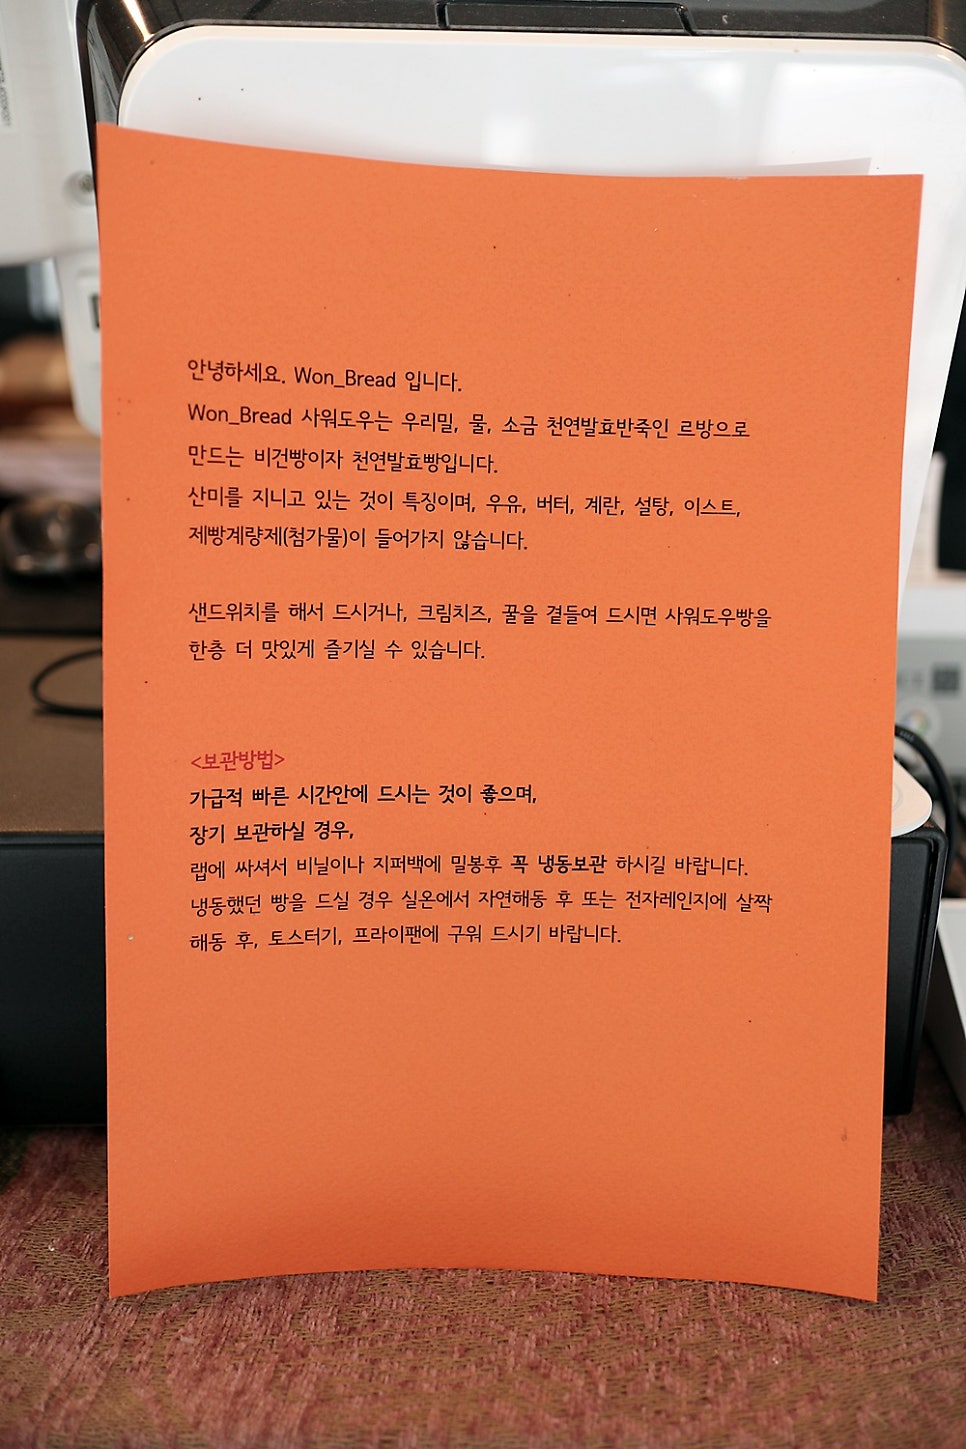 안녕하세요. Won_Bread 입니다.
Won_Bread 사워도우는 우리밀, 물, 소금 천연발효반죽인 르방으로
만드는 비건빵이자 천연발효빵입니다.
산미를 지니고 있는 것이 특징이며, 우유, 버터, 계란, 설탕, 이스트,
제빵계량제(첨가물)이 들어가지 않습니다.
샌드위치를 해서 드시거나, 크림치즈, 꿀을 곁들여 드시면 사워도우빵을
한층 더 맛있게 즐기실 수 있습니다.
<보관방법>
가급적 빠른 시간안에 드시는 것이 좋으며,
장기 보관하실 경우,
랩에 싸셔서 비닐이나 지퍼백에 밀봉후 꼭 냉동보관 하시길 바랍니다.
냉동했던 빵을 드실 경우 실온에서 자연해동 후 또는 전자레인지에 살짝
해동 후, 토스터기, 프라이팬에 구워 드시기 바랍니다.